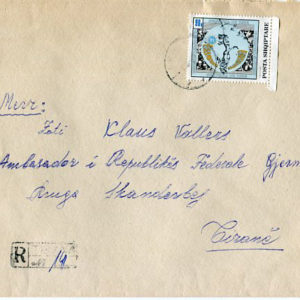 POSTA SHQIPTARE
Merr:
Zoti Klaus Vollers
Ambasador i Republikës Federale Gjerm
Rruga Skanderbej
Tiranë
R
14